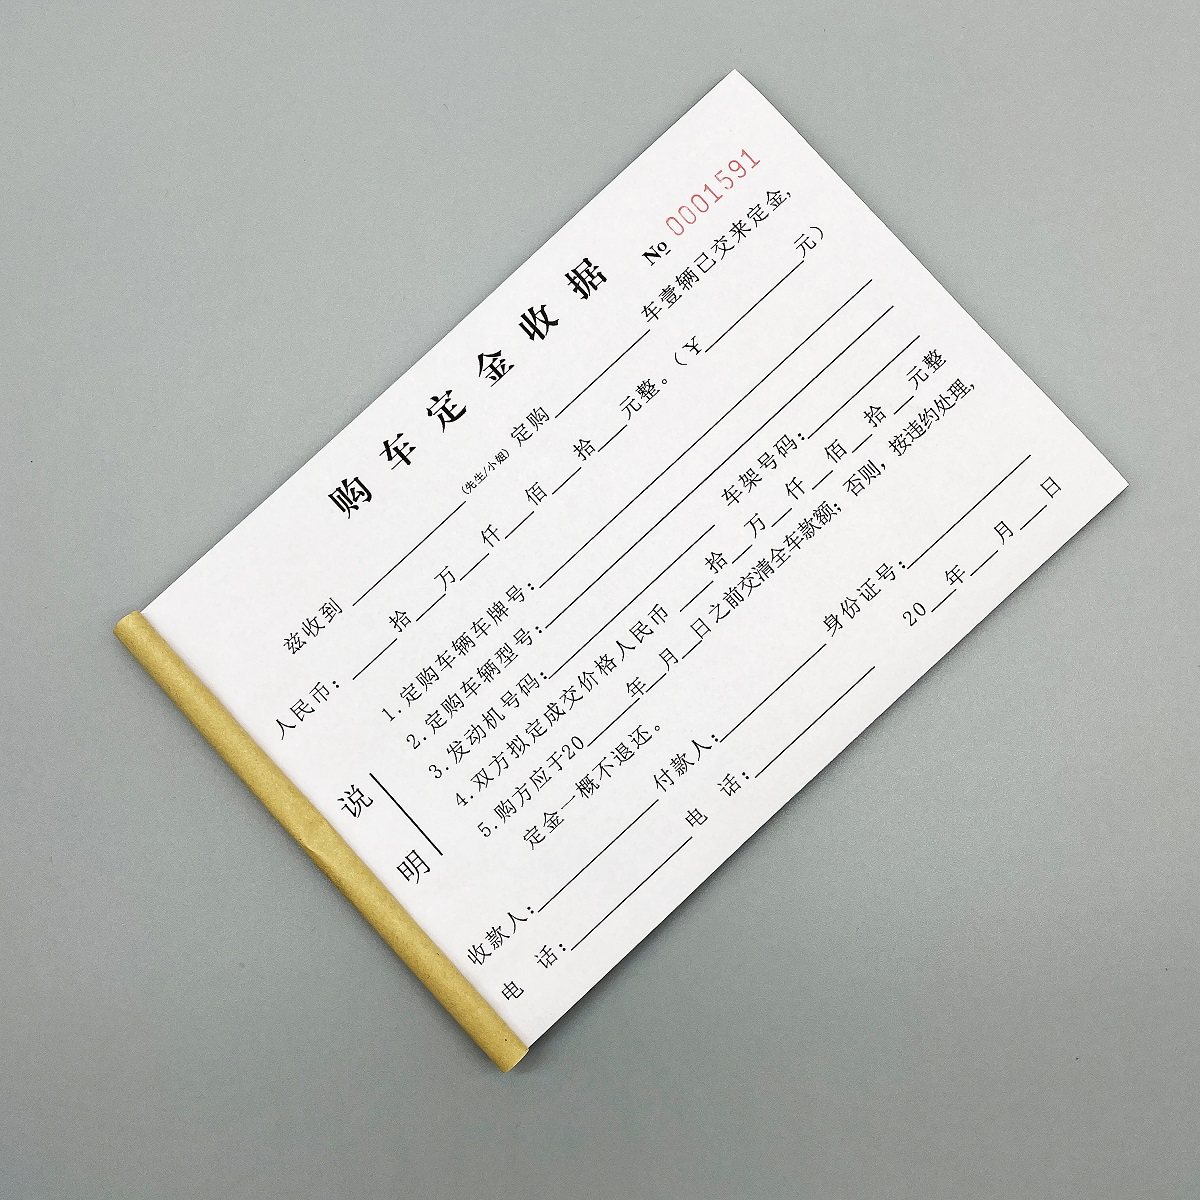 购车定金收据
№ 0001591
兹收到____(先生/小姐)定购____车壹辆已交来定金,
人民币:___拾___万___仟___佰___拾___元整。(¥____元)
说明
1.定购车辆车牌号:____
2.定购车辆型号:____
3.发动机号码:____ 车架号码:____
4.双方拟定成交价格人民币___拾___万___仟___佰___拾___元整
5.购方应于20___年___月___日之前交清全车款额;否则,按违约处理,
定金一概不退还。
收款人:____付款人:____身份证号:____
电 话:____电 话:____ 20__年___月___日